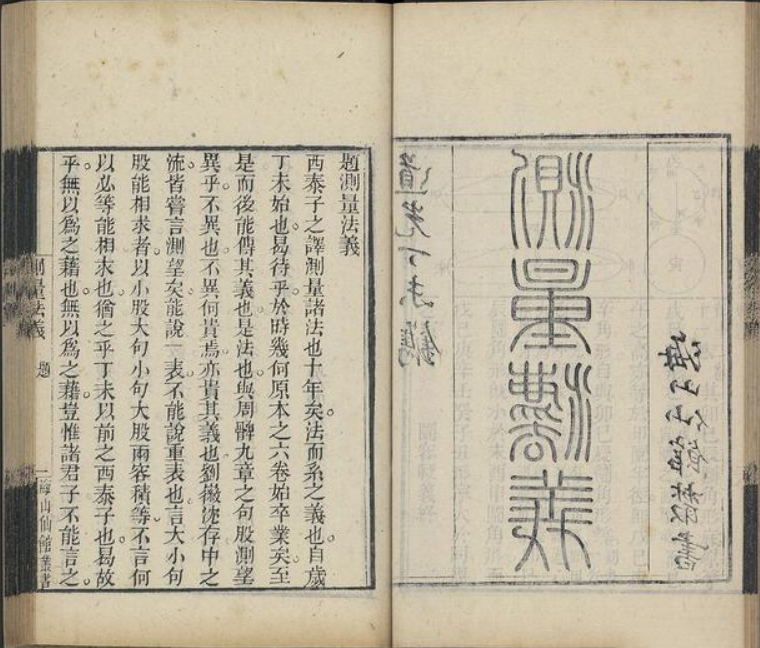 海山仙館叢書
測量灋義
道光丁未鐫
題測量法義
西泰子之譯測量諸法也十年矣。法而系之義也。自歲
丁未始也。曷待乎。於時幾何原本之六卷始卒業矣。至
是而後能傳其義也。是法也。與周髀九章之句股測望
異乎。不異也。不異何貴焉。亦貴其義也。劉徽沈存中之
流皆嘗言測望矣。能說一表不能說重表也。言大小句
股能相求者。以小股大句小句大股兩容積等。不言何
以必等能相求也。猶之乎丁未以前之西泰子也。曷故
乎。無以爲之藉也。無以爲之藉。豈惟諸君子不能言之。
測量法義 題 海山仙館叢書